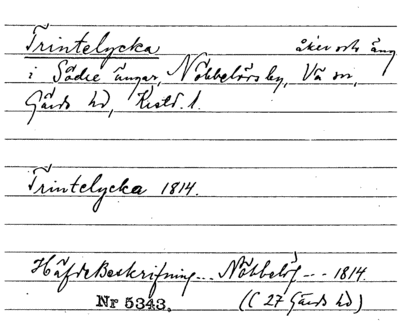 Trintelycka åker och äng
i Södre ängar, Nöbbelövs by, Vä sn,
Gärds hd, Krstd. l.
Trintelycka 1814.
Häfdebeskrifning... Nöbbelöf --- 1814.
Nr 5343. (C 27 Gärds hd)